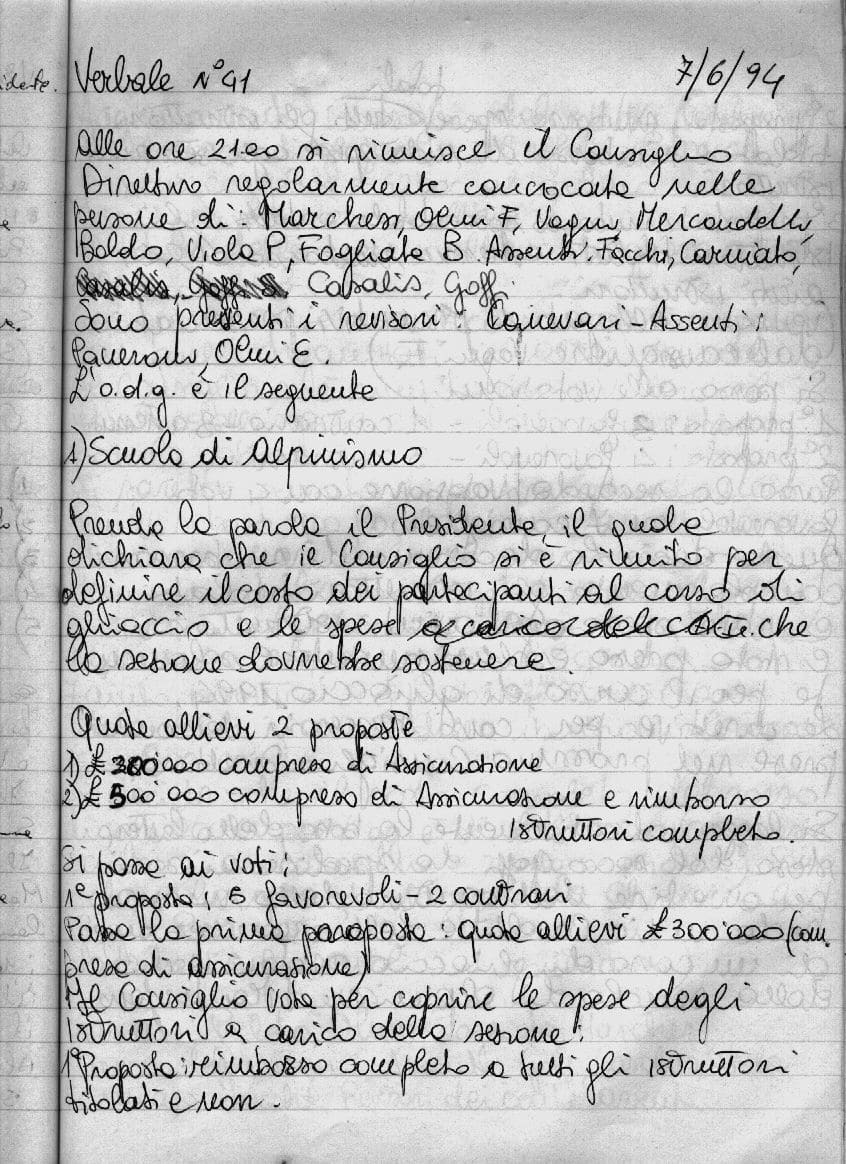 Verbale N° 41 7/6/94
Alle ore 21.00 si riunisce il Consiglio
Direttivo regolarmente convocato nelle
persone di: Marchesi, Olmi F, Vagni, Mercandelli,
Boldo, Viola P, Fogliata B. Assenti: Facchi, Carniato,
Casalis, Goffi Casalis, Goffi.
Sono presenti i revisori: Canevari - Assenti:
Olmi E.
L'o.d.g. è il seguente
1) Scuola di Alpinismo
Prende la parola il Presidente, il quale
dichiara che il Consiglio si è riunito per
definire il costo dei partecipanti al corso di
ghiaccio e le spese a carico del CAI che
la sezione dovrebbe sostenere.
Quota allievi 2 proposte
1) £ 300'000 comprese di Assicurazione
2) £ 500'000 compreso di Assicurazione e rimborso
istruttori completo.
Si passa ai voti;
1ª proposta; 5 favorevoli - 2 contrari
Passa la prima paroposta: quota allievi £ 300'000 (com
prese di assicurazione)
Il Consiglio vota per coprire le spese degli
istruttori a carico della sezione:
1ª Proposta: reimborso completo a tutti gli istruttori
titolati e non.